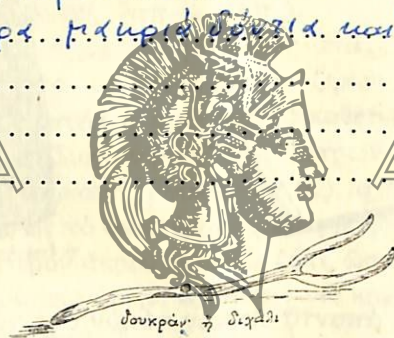 μακριά δόντια και
δουκράν ή διχάλι